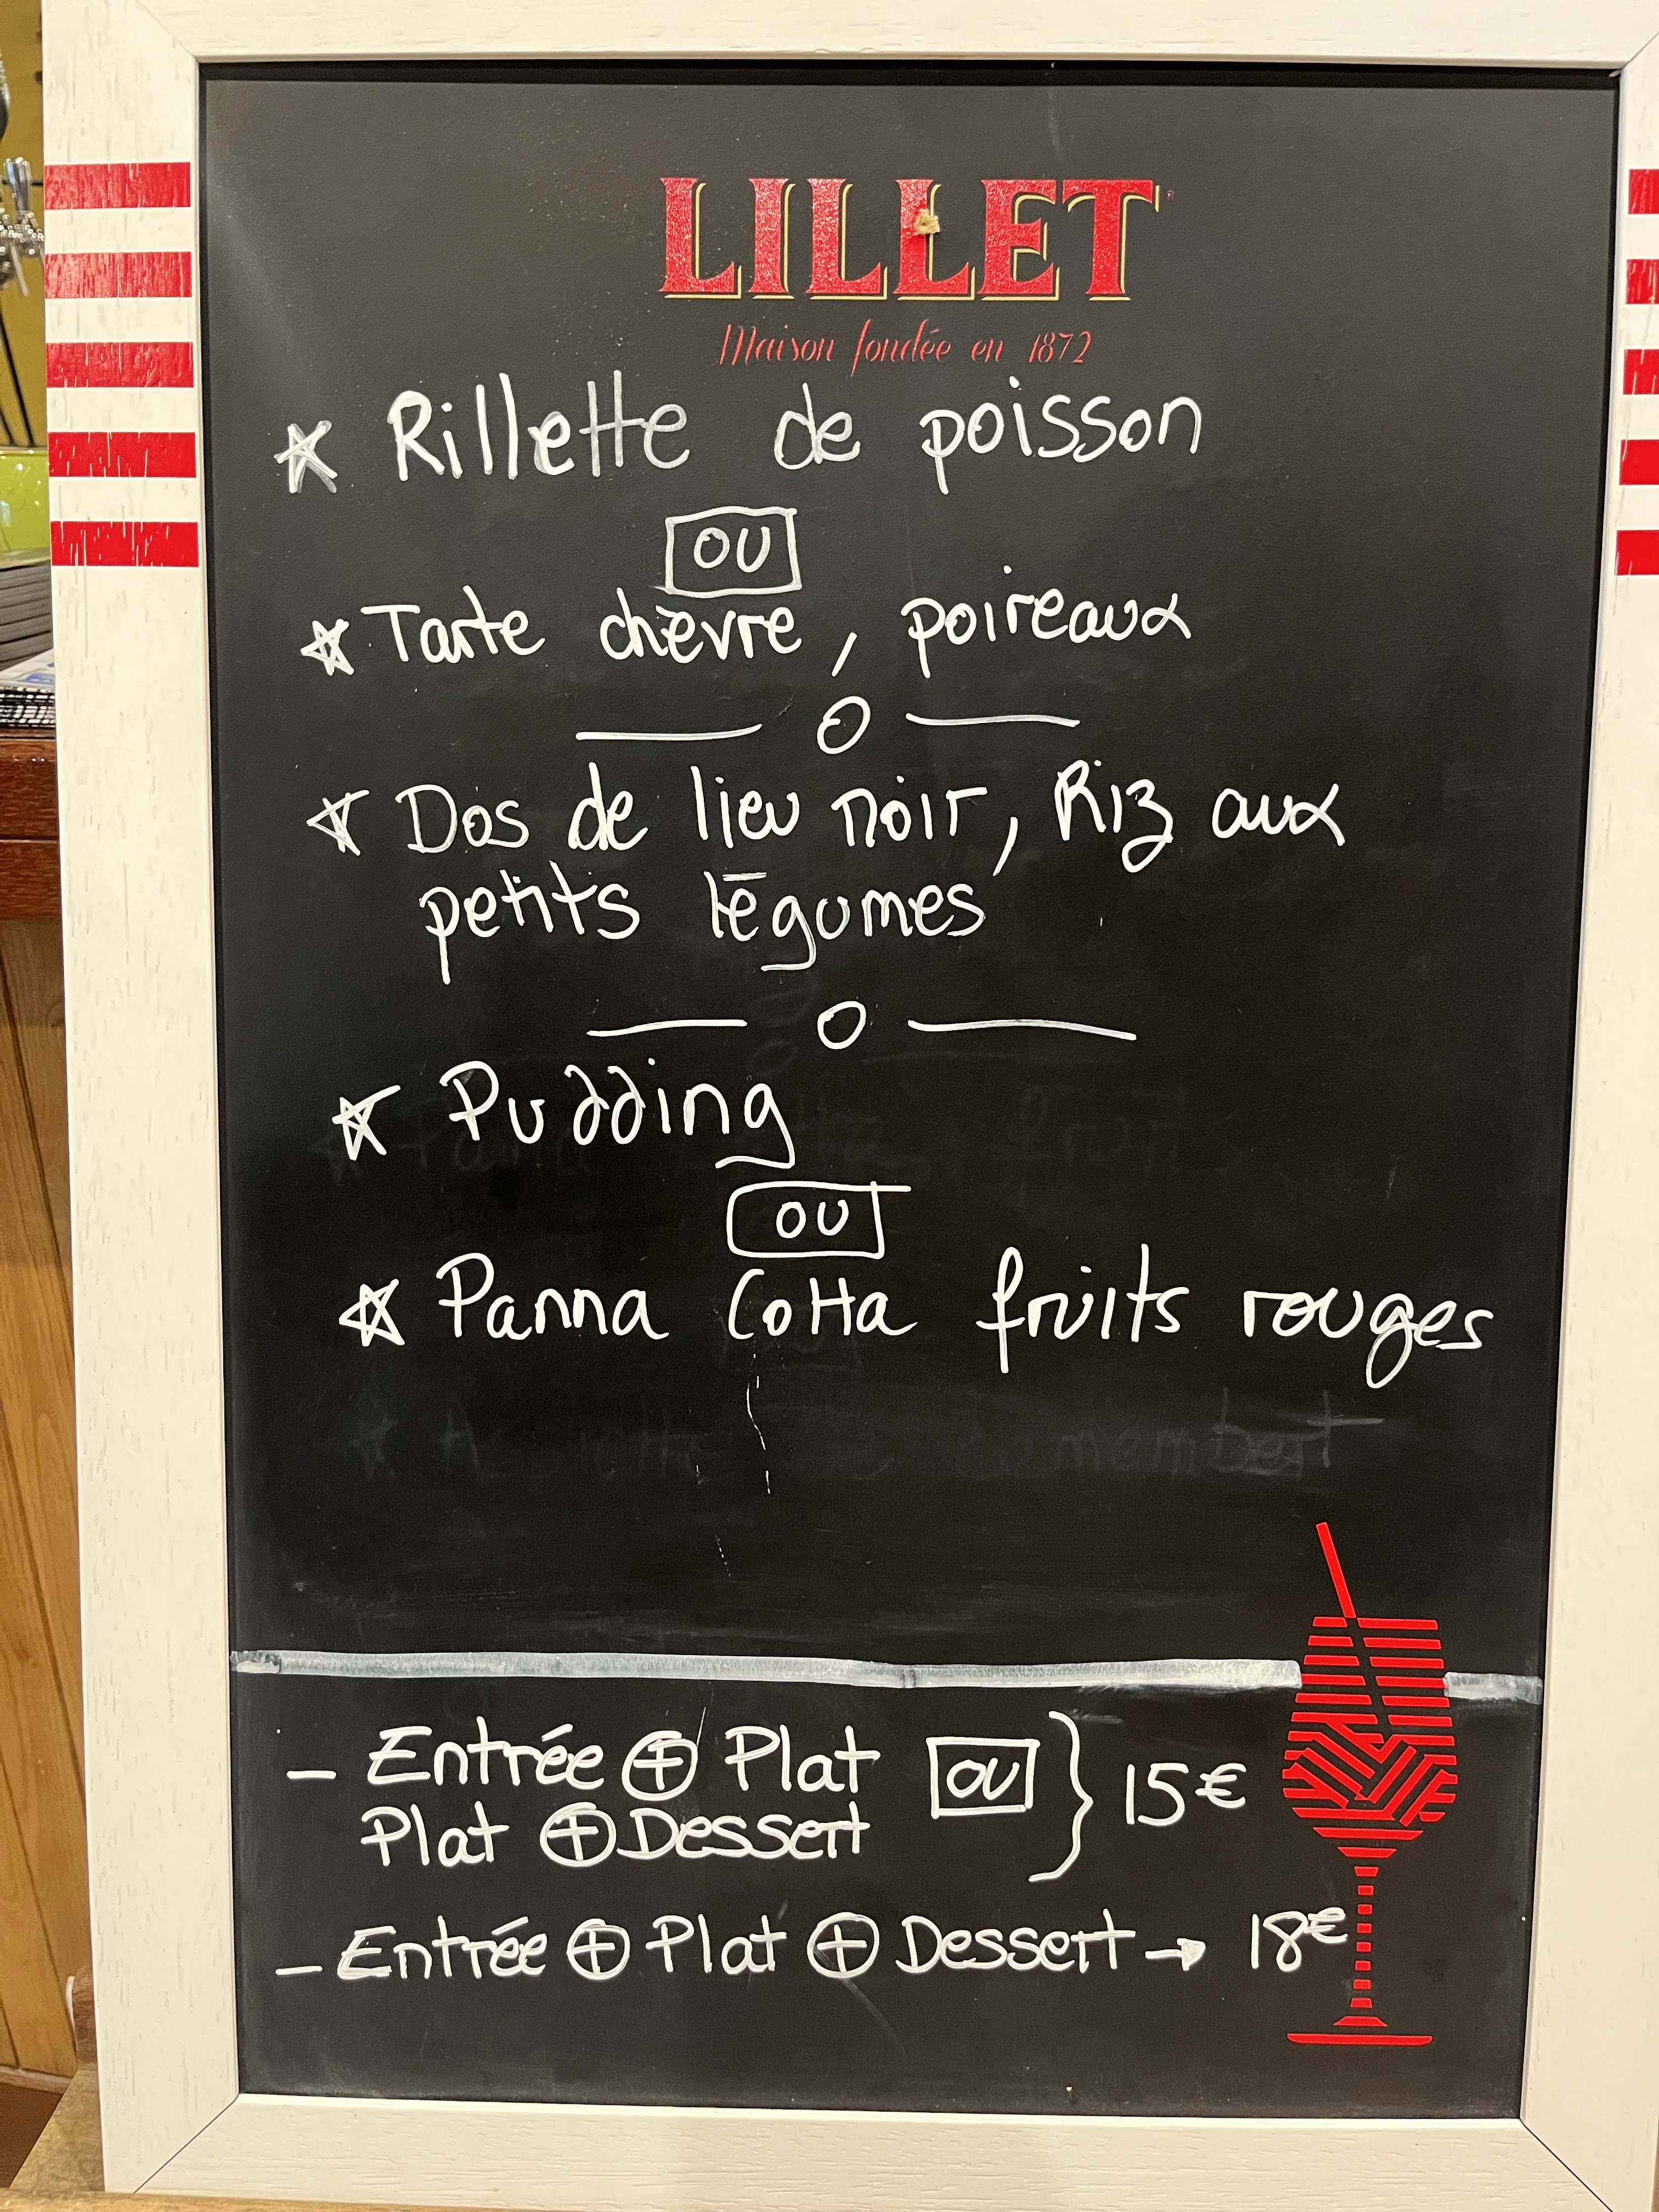 LILLET
Maison fondée en 1872
Rillette de poisson
OU
Tarte chèvre, poireaux
Dos de lieu noir, Riz aux
petits légumes
Pudding
OU
Panna Cotta fruits rouges
camembert
- Entrée + Plat OU } 15€
Plat + Dessert
- Entrée + Plat + Dessert → 18€